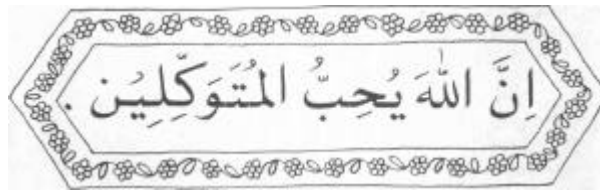 اِنَّ اللّٰهَ يُحِبُّ الْمُتَوَكِّلِيْن .